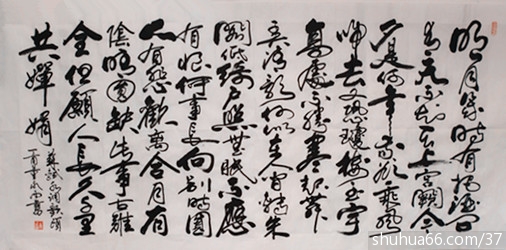 明月幾时有把酒问
青天不知天上宫闕今
夕是何年我欲乘风
归去又恐瓊樓玉宇
高處不勝寒起舞
弄清影何似在人间转朱
阁低绮户照無眠不應
有恨何事長向别時圆
人有悲歡離合月有
陰晴圆缺此事古難
全但願人長久千里
共嬋娟
蘇軾水调歌頭
shuhua66.com/37